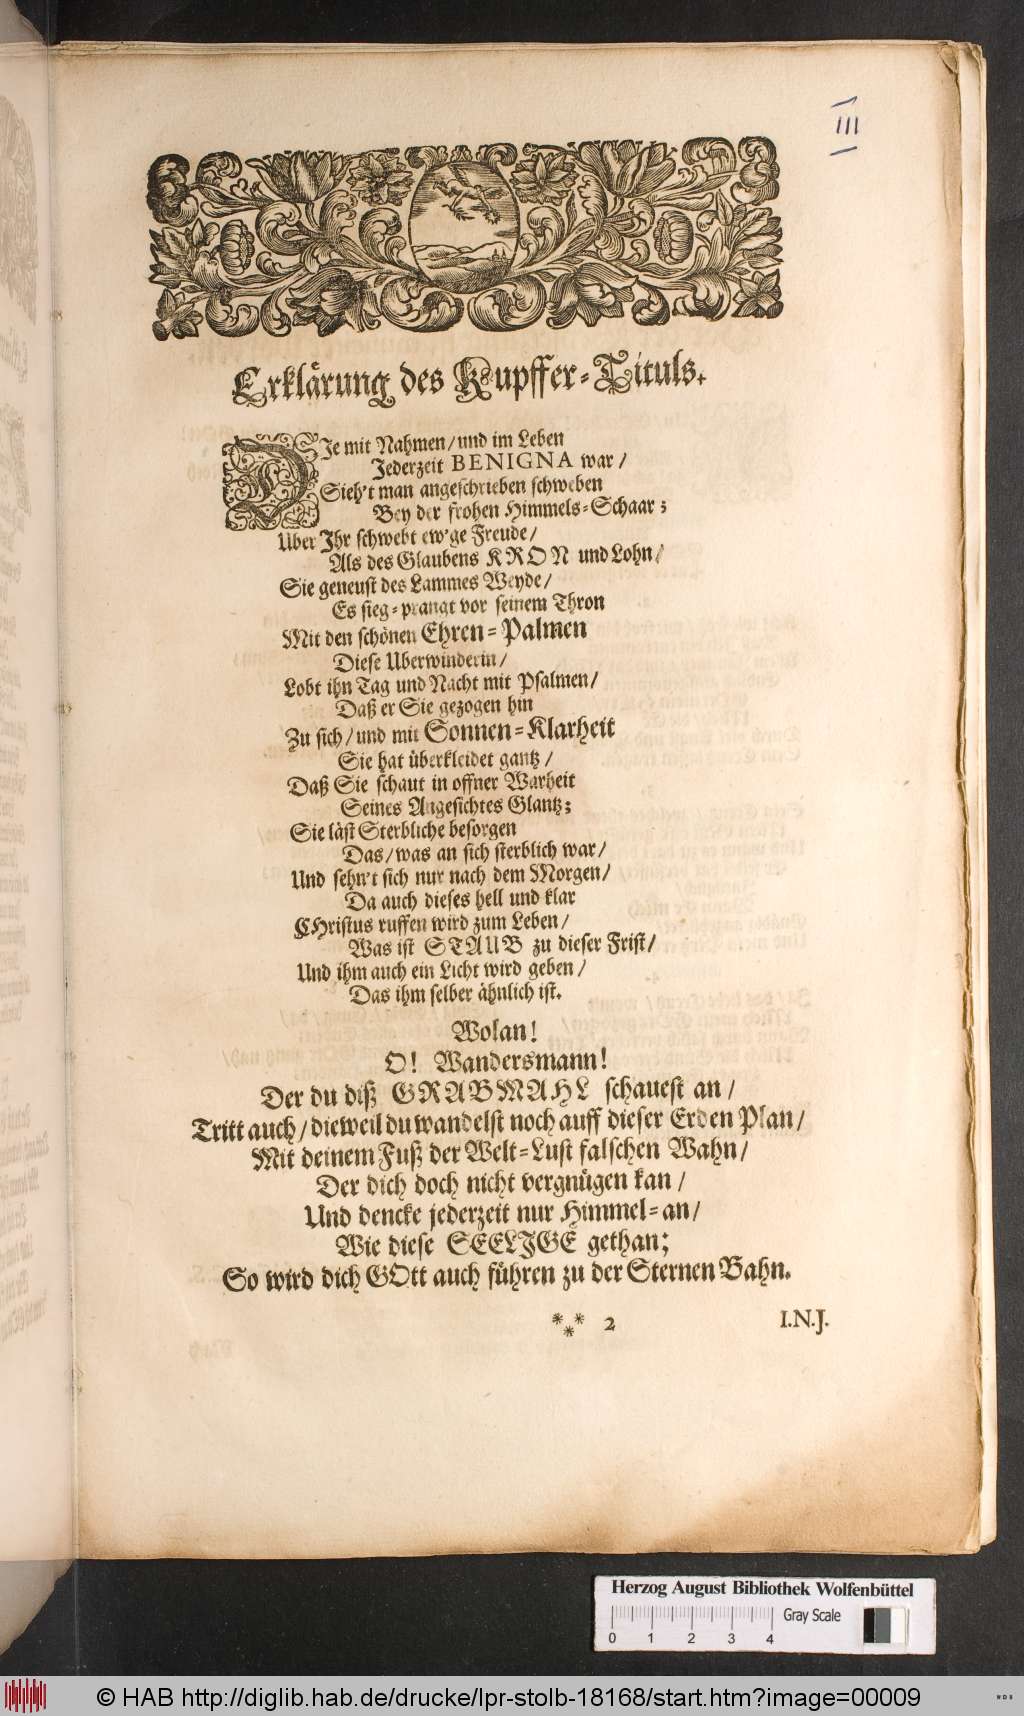 III
Erklärung des Kupffer-Tituls.
DIe mit Nahmen/und im Leben
Jederzeit BENIGNA war/
Sieh't man angeschrieben schweben
Bey der frohen Himmels-Schaar;
Uber Ihr schwebt ew'ge Freude/
Als des Glaubens KRON und Lohn/
Sie geneust des Lammes Weyde/
Es sieg-prangt vor seinem Thron
Mit den schönen Ehren-Palmen
Diese Uberwinderin/
Lobt ihn Tag und Nacht mit Psalmen/
Daß er Sie gezogen hin
Zu sich/und mit Sonnen-Klarheit
Sie hat überkleidet gantz/
Daß Sie schaut in offner Warheit
Seines Angesichtes Glantz;
Sie läst Sterbliche besorgen
Das/was an sich sterblich war/
Und sehn't sich nur nach dem Morgen/
Da auch dieses hell und klar
CHristus ruffen wird zum Leben/
Was ist STAUB zu dieser Frist/
Und ihm auch ein Licht wird geben/
Das ihm selber ähnlich ist.
Wolan!
O! Wandersmann!
Der du diß GRABMAHL schauest an/
Tritt auch/dieweil du wandelst noch auff dieser Erden Plan/
Mit deinem Fuß der Welt-Lust falschen Wahn/
Der dich doch nicht vergnügen kan/
Und dencke jederzeit nur Himmel-an/
Wie diese SEELIGE gethan;
So wird dich GOtt auch führen zu der Sternen Bahn.
*** 2 I.N.J.
Herzog August Bibliothek Wolfenbüttel
Gray Scale
0 1 2 3 4
© HAB http://diglib.hab.de/drucke/lpr-stolb-18168/start.htm?image=00009